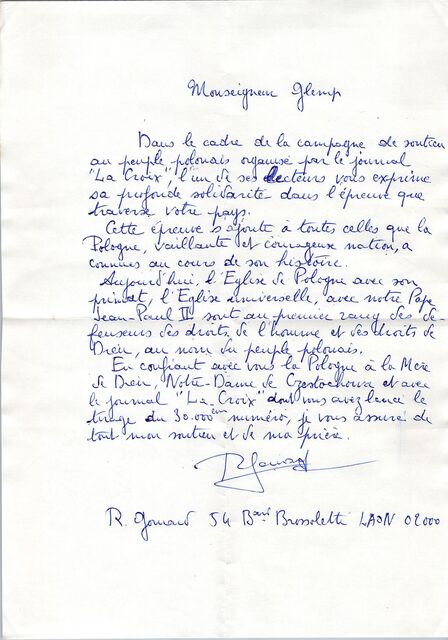 Monseigneur Glemp
Dans le cadre de la campagne de soutien
au peuple polonais organisé par le journal
"La Croix", l'un de ses lecteurs vous exprime
sa profonde solidarité dans l'épreuve que
traverse votre pays.
Cette épreuve s'ajoute à toutes celles que la
Pologne, vaillante et courageuse nation, a
connues au cours de son histoire.
Aujourd'hui, l'Eglise de Pologne avec son
primat, l'Eglise universelle, avec notre Pape
Jean-Paul II sont au premier rang des dé-
fenseurs des droits de l'homme et des droits de
Dieu, au nom du peuple polonais.
En confiant avec vous la Pologne à la Mère
de Dieu, Notre-Dame de Czestochowa et avec
le journal "La Croix" dont vous avez lancé le
tirage du 30.000ème numéro, je vous assure de
tout mon soutien et de ma prière.
R. 54 Bard Brossolette LAON 02000